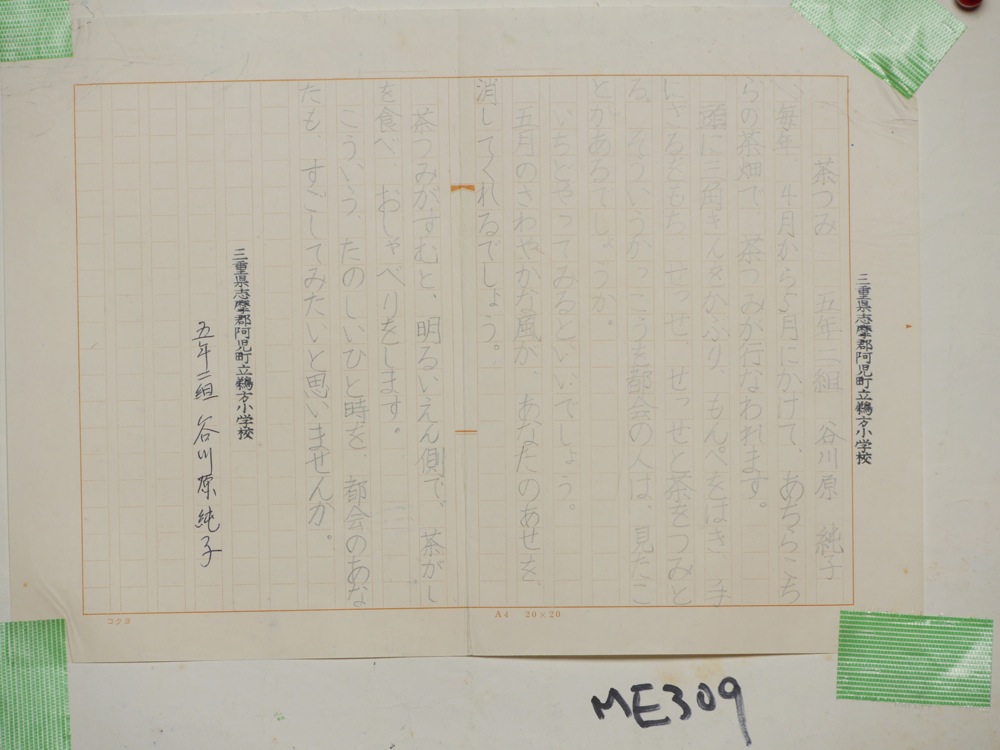 三重県志摩郡阿児町立鵜方小学校
茶つみ 五年二組 谷川原 純子
毎年 4月から5月にかけて、あちらこち
らの茶畑で、茶つみが行なわれます。
頭に三角きんをかぶり、もんぺをはき、手
にざるをもち せっせと茶をつみと
る。そういうかっこうを都会の人は、見たこ
とがあるでしょうか。
いちどやってみるといいでしょう。
五月のさわやかな風が、あなたのあせを、
消してくれるでしょう。
茶つみがすむと、明るいえん側で、茶がし
を食べ、おしゃべりをします。
こういう、たのしいひと時を、都会のあな
たも、すごしてみたいと思いませんか。
三重県志摩郡阿児町立鵜方小学校
五年二組 谷川原純子
コクヨ
A4 20×20
ME309